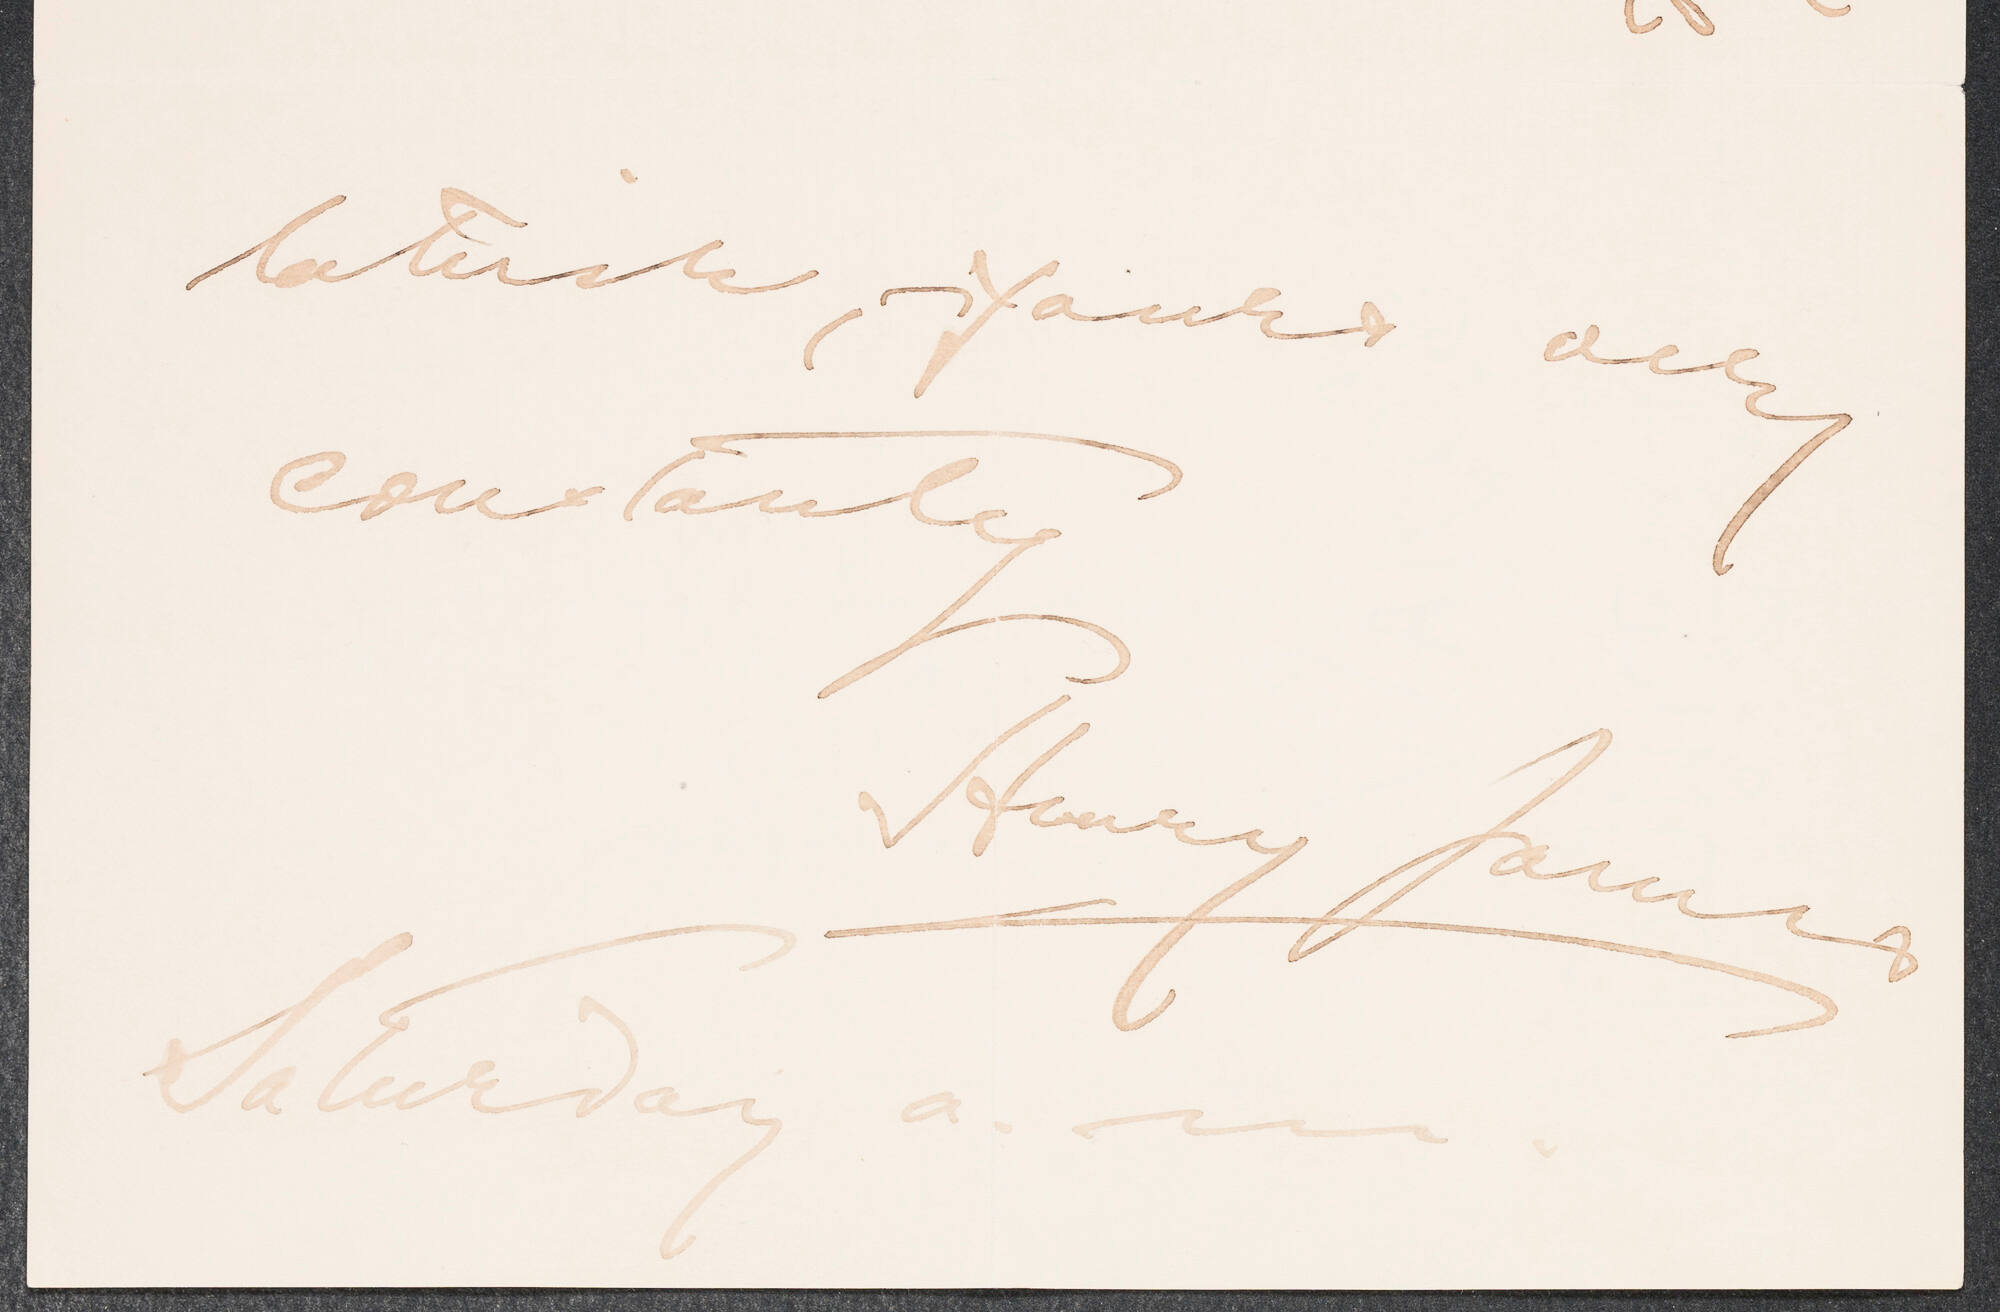 laterish, yours very
constantly
Henry James
Saturday a.m.